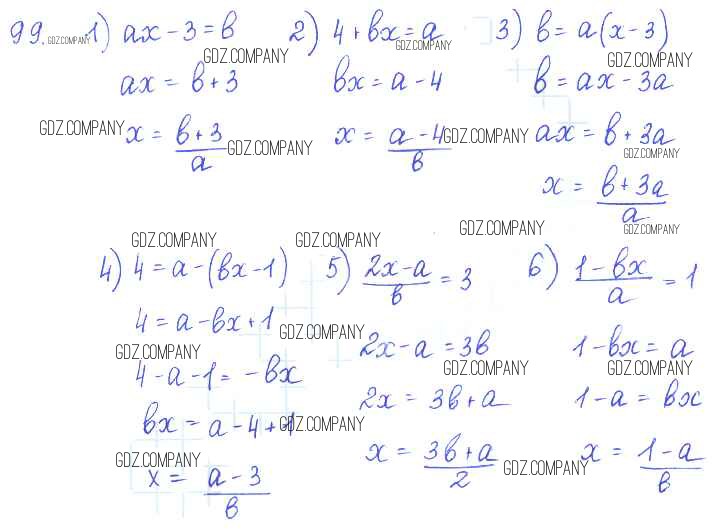 99. GDZ.COMPANY 1) ax - 3 = b 2) 4 + bx = a 3) b = a(x - 3)
GDZ.COMPANY GDZ.COMPANY GDZ.COMPANY
ax = b + 3 bx = a - 4 b = ax - 3a
GDZ.COMPANY x = (b + 3)/a GDZ.COMPANY x = (a - 4)/b GDZ.COMPANY ax = b + 3a
GDZ.COMPANY
x = (b + 3a)/a
GDZ.COMPANY GDZ.COMPANY GDZ.COMPANY GDZ.COMPANY
4) 4 = a - (bx - 1) 5) (2x - a)/b = 3 6) (1 - bx)/a = 1
4 = a - bx + 1 GDZ.COMPANY 2x - a = 3b 1 - bx = a
GDZ.COMPANY GDZ.COMPANY GDZ.COMPANY
4 - a - 1 = -bx 2x = 3b + a 1 - a = bx
bx = a - 4 + 1 GDZ.COMPANY x = (3b + a)/2 x = (1 - a)/b
GDZ.COMPANY GDZ.COMPANY
x = (a - 3)/b